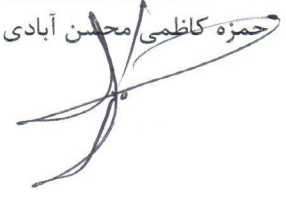 حمزه کاظمی محسن آبادی